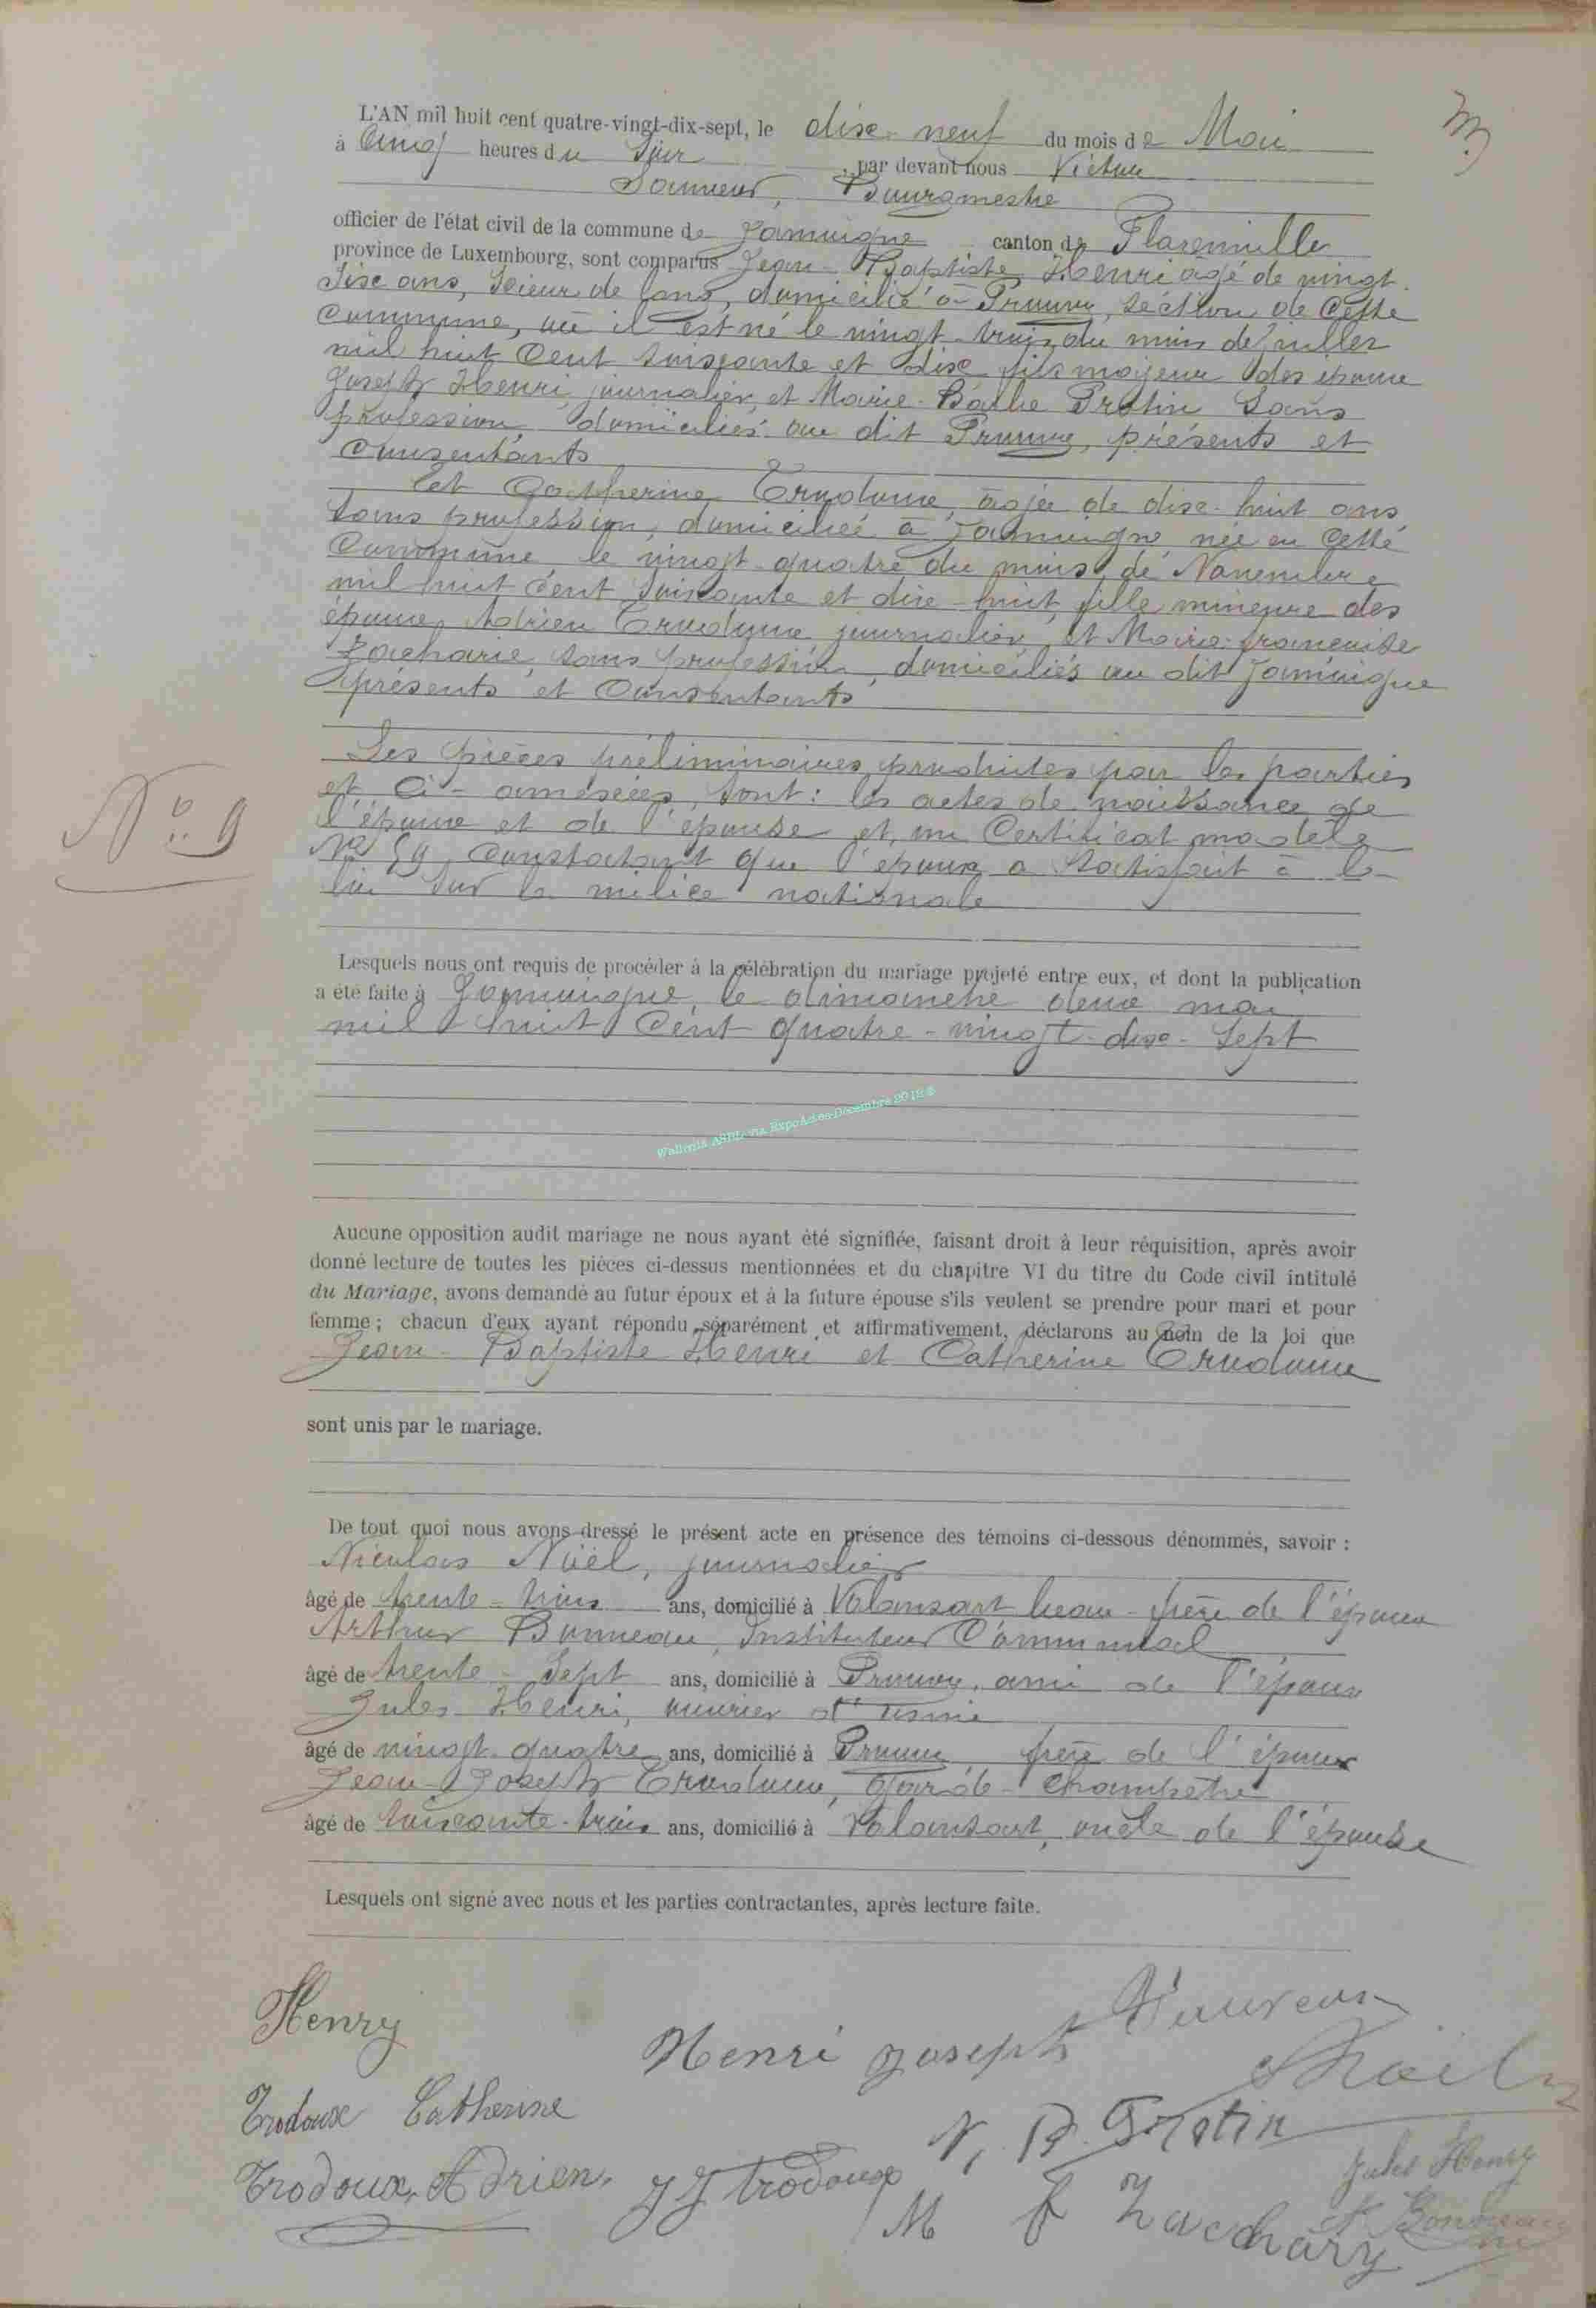 L'AN mil huit cent quatre-vingt-dix-sept, le dix-neuf du mois de Mai
à Cinq heures du Soir, par devant nous Victor
Bourgmestre
officier de l'état civil de la commune de Jamoigne canton de Florenville
province de Luxembourg, sont comparus Jean-Baptiste Henri âgé de vingt
six ans, Scieur de long, domicilié à Prouvy, Section de Cette
Commune, où il est né le vingt-trois du mois de Juillet
mil huit Cent Soixante et dix fils majeur des époux
Joseph Henri, journalier, et Marie-Barbe Protin Sans
profession, domiciliés au dit Prouvy, présents et
Consentants
Et Catherine Trodoux, âgée de dix-huit ans
Sans profession, domiciliée à Jamoigne née en Cette
Commune, le vingt-quatre du mois de Novembre
mil huit Cent Soixante et dix-huit, fille mineure des
époux Adrien Trodoux, journalier, et Marie-françoise
Zacharie, Sans profession, domiciliés au dit Jamoigne
présents et Consentants
Les pièces préliminaires produites par les parties
et Ci-annexées, Sont: les actes de naissance de
l'époux et de l'épouse et un Certificat modèle
Constatant que l'époux a Satisfait à la
loi Sur la milice nationale
N° 9
Lesquels nous ont requis de procéder à la célébration du mariage projeté entre eux, et dont la publication
a été faite à Jamoigne, le dimanche deux mai
mil huit Cent quatre-vingt-dix-Sept
Wallonia ASBL via ExpoActes-Décembre 2018 ©
Aucune opposition audit mariage ne nous ayant été signifiée, faisant droit à leur réquisition, après avoir
donné lecture de toutes les pièces ci-dessus mentionnées et du chapitre VI du titre du Code civil intitulé
du Mariage, avons demandé au futur époux et à la future épouse s'ils veulent se prendre pour mari et pour
femme; chacun d'eux ayant répondu séparément et affirmativement, déclarons au nom de la loi que
Jean-Baptiste Henri et Catherine Trodoux
sont unis par le mariage.
De tout quoi nous avons dressé le présent acte en présence des témoins ci-dessous dénommés, savoir :
Nicolas Noël, journalier
âgé de trente-trois ans, domicilié à Valansart beau-frère de l'époux
Arthur Bonneau, Instituteur Communal
âgé de trente-Sept ans, domicilié à Prouvy, ami de l'époux
Jules Henri, ouvrier d'usine
âgé de vingt-quatre ans, domicilié à Prouvy frère de l'époux
Jean-Joseph Trodoux, garde-champêtre
âgé de Soixante-trois ans, domicilié à Valansart, oncle de l'épouse
Lesquels ont signé avec nous et les parties contractantes, après lecture faite.
Henry
Henri Joseph
Noël
Trodoux Catherine
B. Protin
Jules Henry
Trodoux, Adrien,
J J Trodoux
M f Zachary